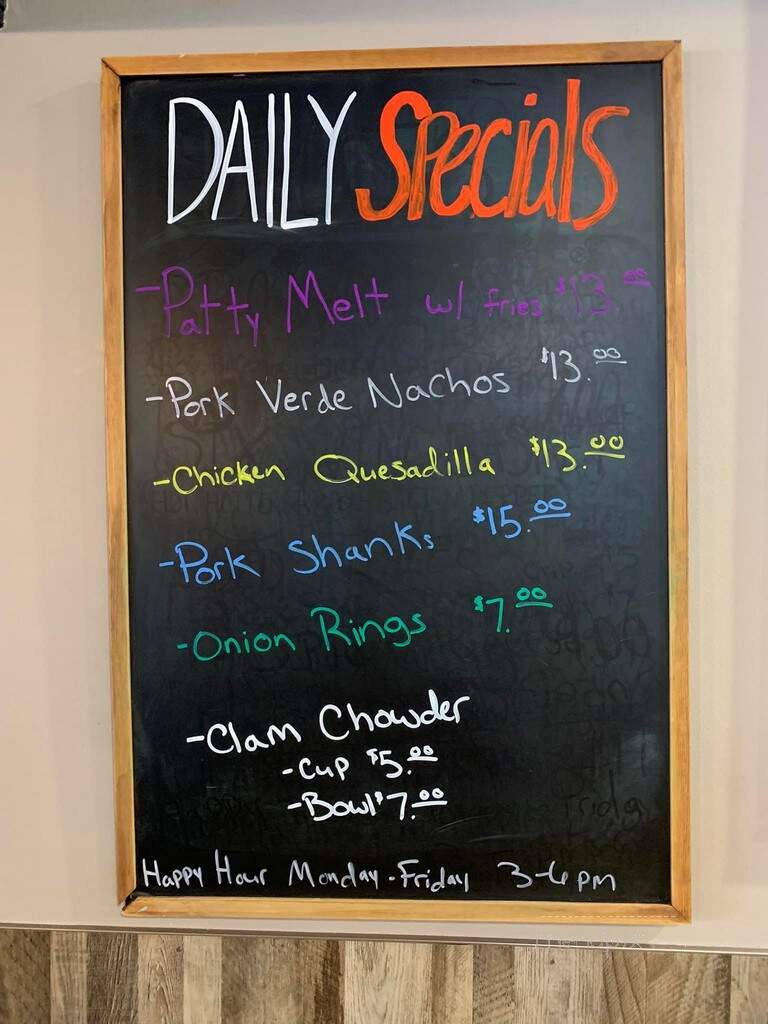 DAILY Specials
- Patty Melt w/ fries $13.00
- Pork Verde Nachos $13.00
- Chicken Quesadilla $13.00
- Pork Shanks $15.00
- Onion Rings $7.00
- Clam Chowder
- Cup $5.00
- Bowl $7.00
Happy Hour Monday - Friday 3-6 pm